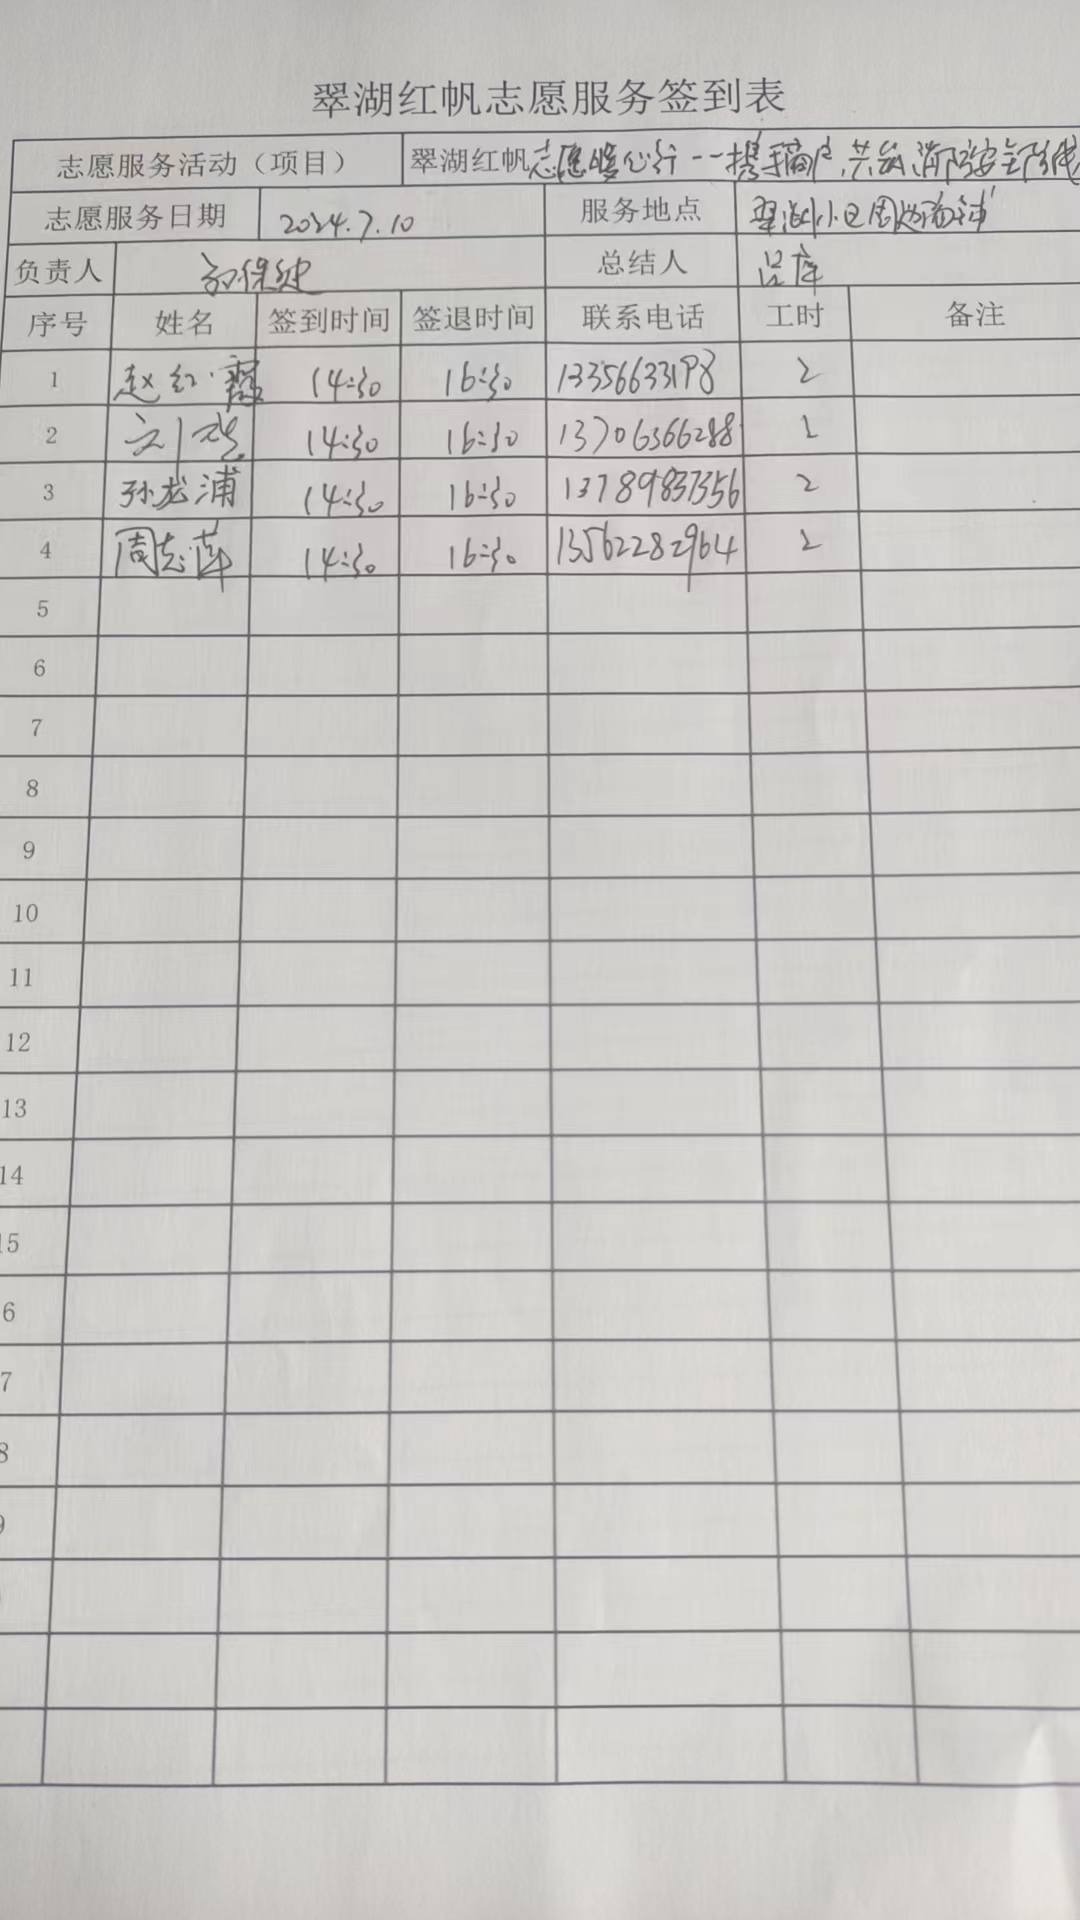 翠湖红帆志愿服务签到表
志愿服务活动（项目） 翠湖红帆志愿暖心行--携手商户,共筑消防安全防线
志愿服务日期 2024.7.10 服务地点 翠湖小区周边商铺
负责人 总结人 吕库
序号 姓名 签到时间 签退时间 联系电话 工时 备注
1 赵红霞 14:30 16:30 13356633198 2
2 14:30 16:30 13706366288 2
3 孙龙浦 14:30 16:30 13789837356 2
4 周志萍 14:30 16:30 13562282964 2
5
6
7
8
9
10
11
12
13
14
15
6
7
8
9